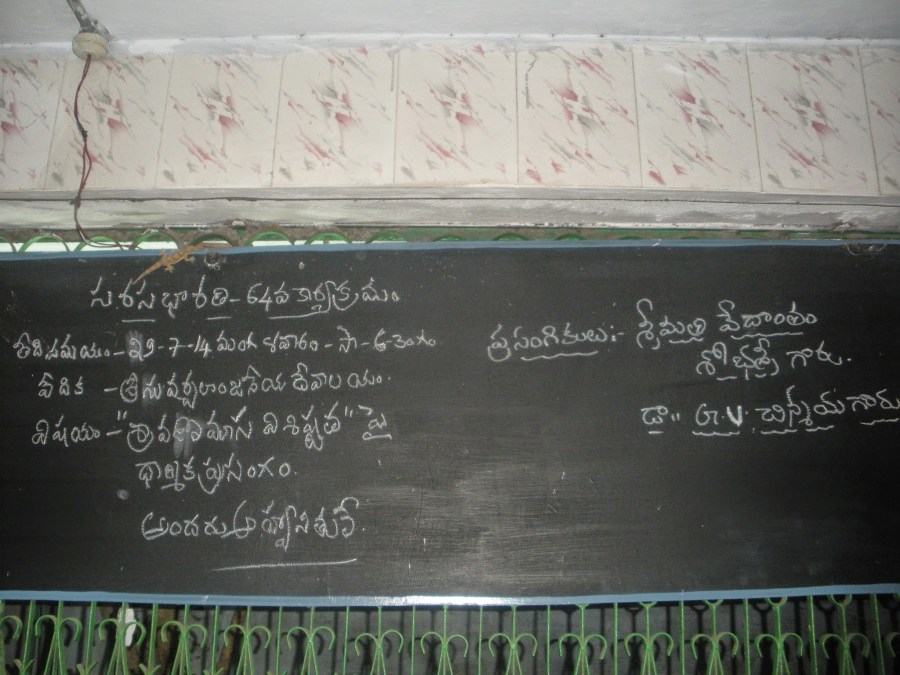 సరసభారతి - 64వ కార్యక్రమం
తేదిసమయం - 29-7-14 మంగళవారం - సా - 6-30గం
వేదిక - శ్రీ సువర్చలాంజనేయ దేవాలయం.
విషయం - "శ్రావణమాస విశిష్టత" పై
ధార్మిక ప్రసంగం.
అందరు ఆహ్వానితులే.
ప్రసంగికులు :- శ్రీమతి వేదాంతం
శోభశ్రీ గారు.
డా" G.V. చిన్మయ గారు